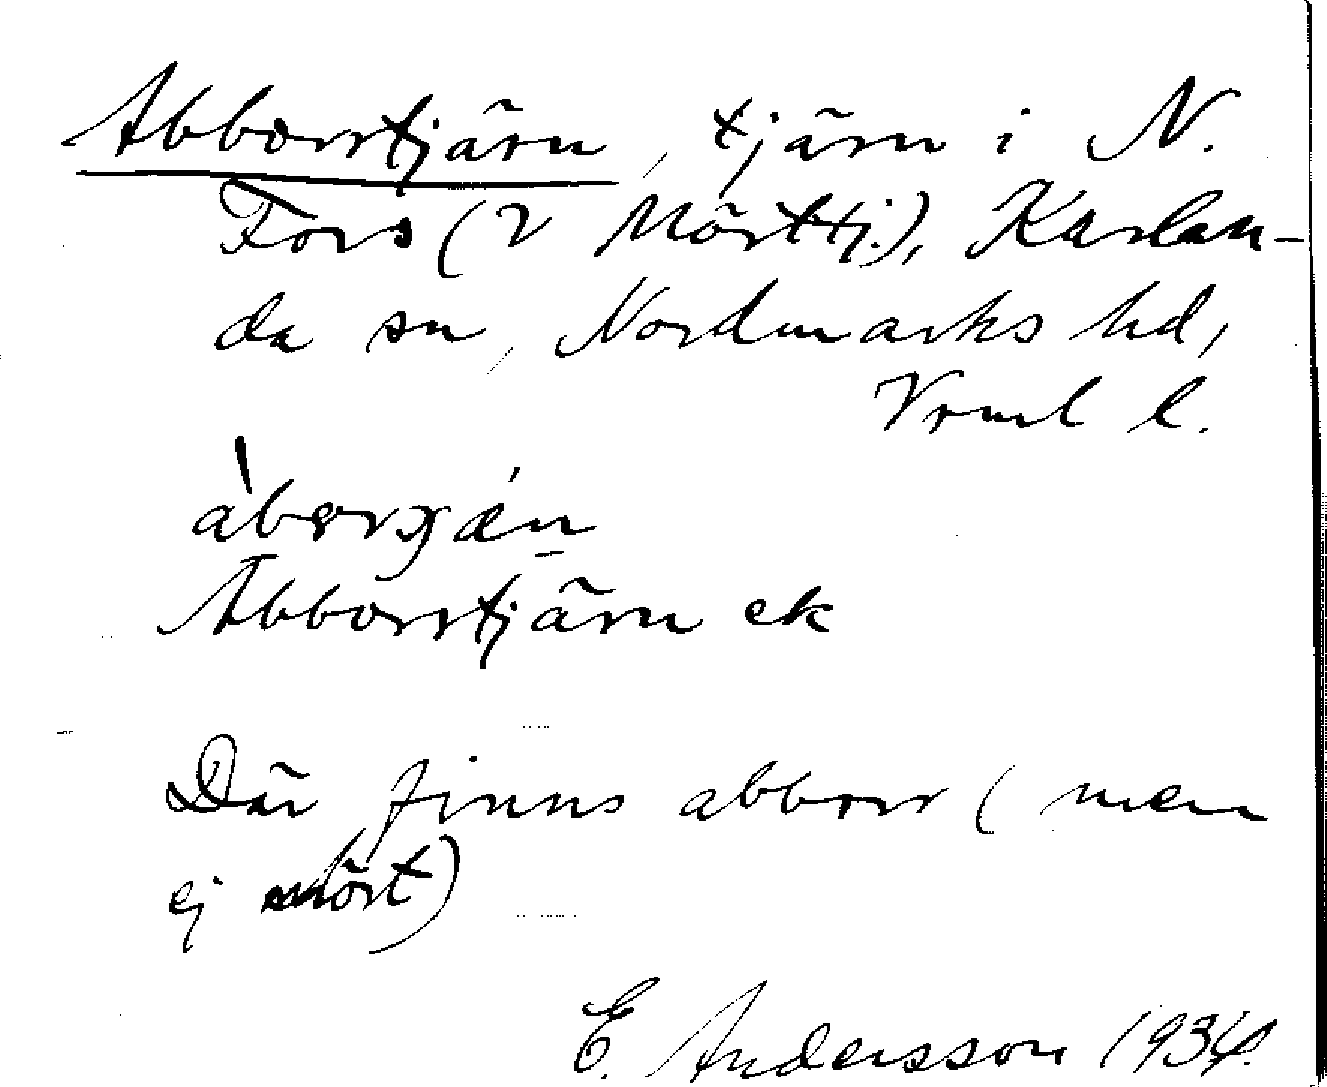 Abborrtjärn, tjärn i N.
Fors (V Mörttj.), Karlan-
da sn, Nordmarks hd,
Vrml l.
Abborrtjärn ek
Där finns abborr (men
ej mört)
E. Andersson 1934.